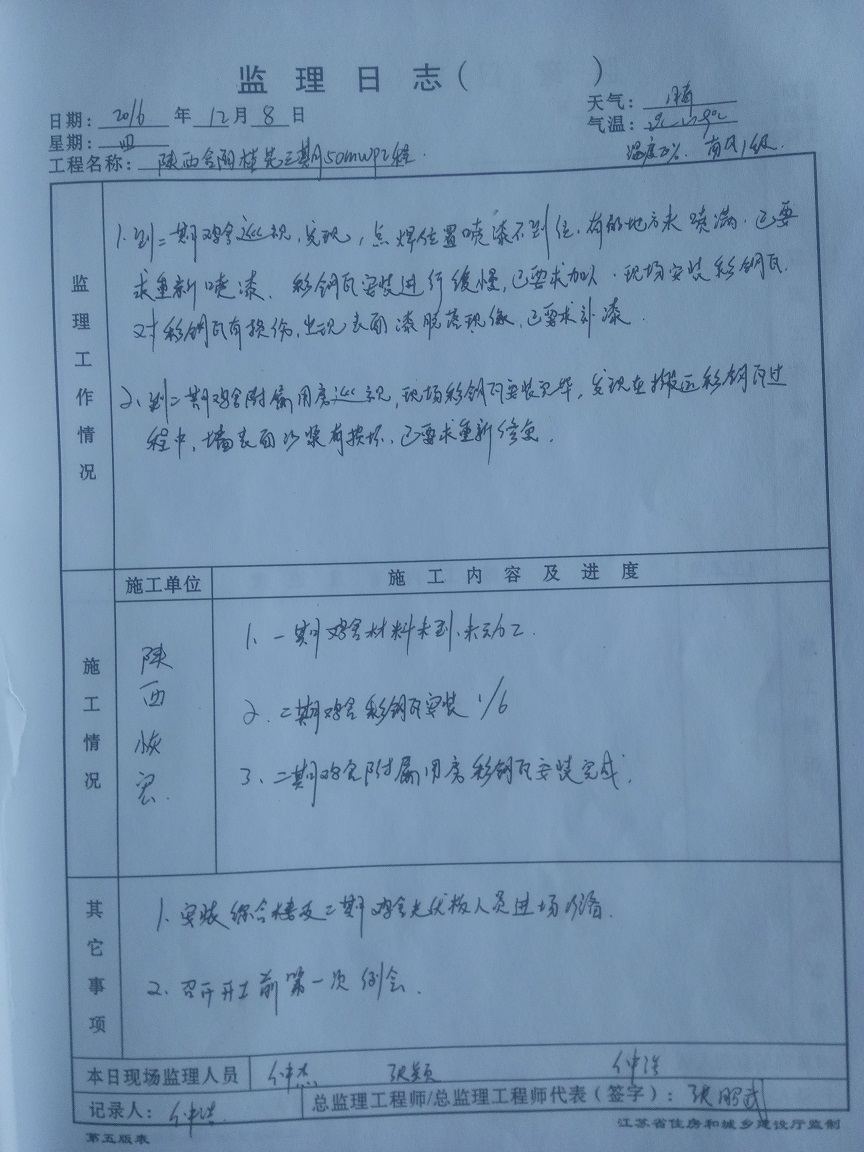 监理日志（ ）
日期：2016年12月8日 天气：晴
星期：四 气温：
工程名称：陕西合阳 三期50mwp工程. 湿度 %、南风1级.
监理工作情况
1.到二期鸡舍巡视,发现,点焊位置喷漆不到位,有的地方未喷满.已要
求重新喷漆.彩钢瓦安装进行缓慢,已要求加人.现场安装彩钢瓦.
对彩钢瓦有损伤,出现表面漆脱落现象,已要求补漆.
2.到二期鸡舍附属用房巡视,现场彩钢瓦安装完毕,发现在搬运彩钢瓦过
程中,墙表面 浆有损坏,已要求重新修复.
施工情况
施工单位 施工内容及进度
陕西恢宏.
1.一期鸡舍材料未到.未动工.
2.二期鸡舍彩钢瓦安装1/6
3.二期鸡舍附属用房彩钢瓦安装完成.
其它事项
1.安装综合楼及二期鸡舍光伏板人员进场准备.
2.召开开工前第一次例会.
本日现场监理人员 仲杰 张颖 仲洁
记录人：仲洁 总监理工程师/总监理工程师代表（签字）：张鹏武
第五版表 江苏省住房和城乡建设厅监制